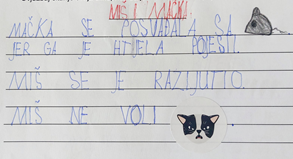 MIŠ I MAČKA
MAČKA SE POSVAĐALA SA
JER GA JE HTJELA POJESTI.
MIŠ SE JE RAZLJUTIO.
MIŠ NE VOLI .